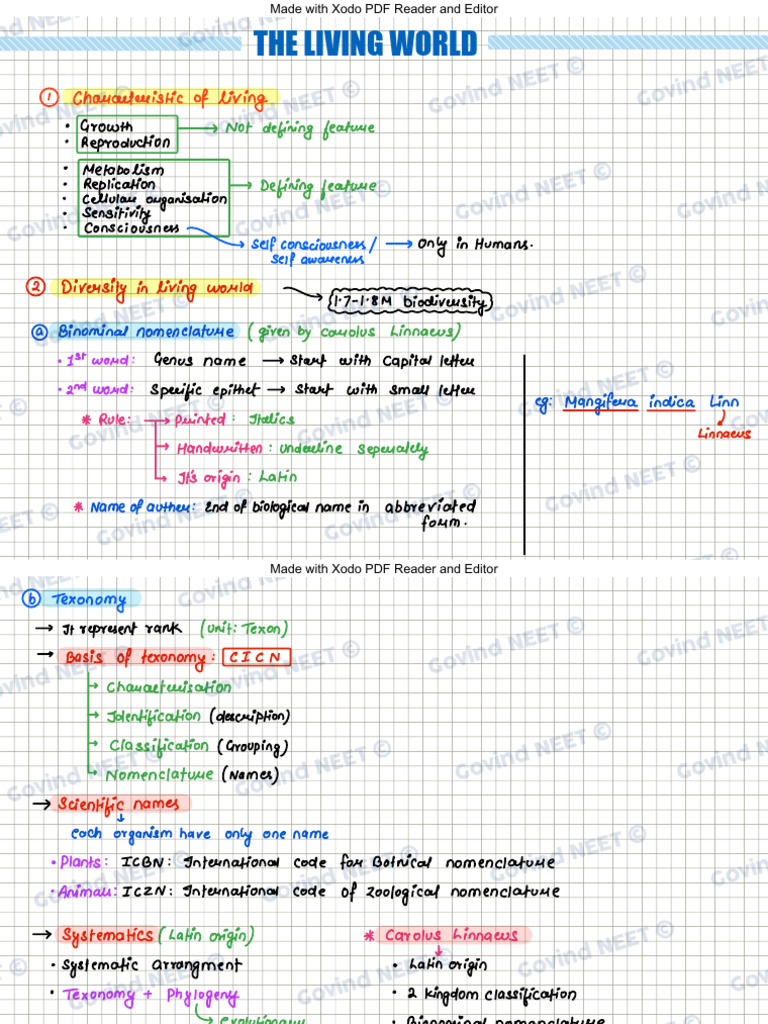 Made with Xodo PDF Reader and Editor
THE LIVING WORLD
① Characteristic of living
• Growth
• Reproduction
→ Not defining feature
• Metabolism
• Replication
• Cellular organisation
• Sensitivity
• Consciousness
→ Defining feature
→ Self consciousness/ self awareness → Only in Humans.
② Diversity in living world → 1.7-1.8M biodiversity
ⓐ Binominal nomenclature (given by carolus Linnaeus)
• 1st word: Genus name → Start with Capital letter
• 2nd word: Specific epithet → Start with Small letter
* Rule: → Printed: Italics
→ Handwritten: Underline seperately
→ It's origin: Latin
* Name of auther: End of biological name in abbreviated form.
eg: Mangifera indica Linn
Linnaeus
Made with Xodo PDF Reader and Editor
ⓑ Texonomy
→ It represent rank (Unit: Texon)
→ Basis of texonomy: CICN
→ Characterisation
→ Identification (description)
→ Classification (Grouping)
→ Nomenclature (Names)
→ Scientific names
↓
each organism have only one name
• Plants: ICBN: International code for Botnical nomenclature
• Animals: ICZN: International code of zoological nomenclature
→ Systematics (Latin origin)
• Systematic arrangment
• Texonomy + Phylogeny
→ Evolutionary
* Carolus Linnaeus
• Latin origin
• 2 kingdom classification
• Binominal nomenclature
Govind NEET ©